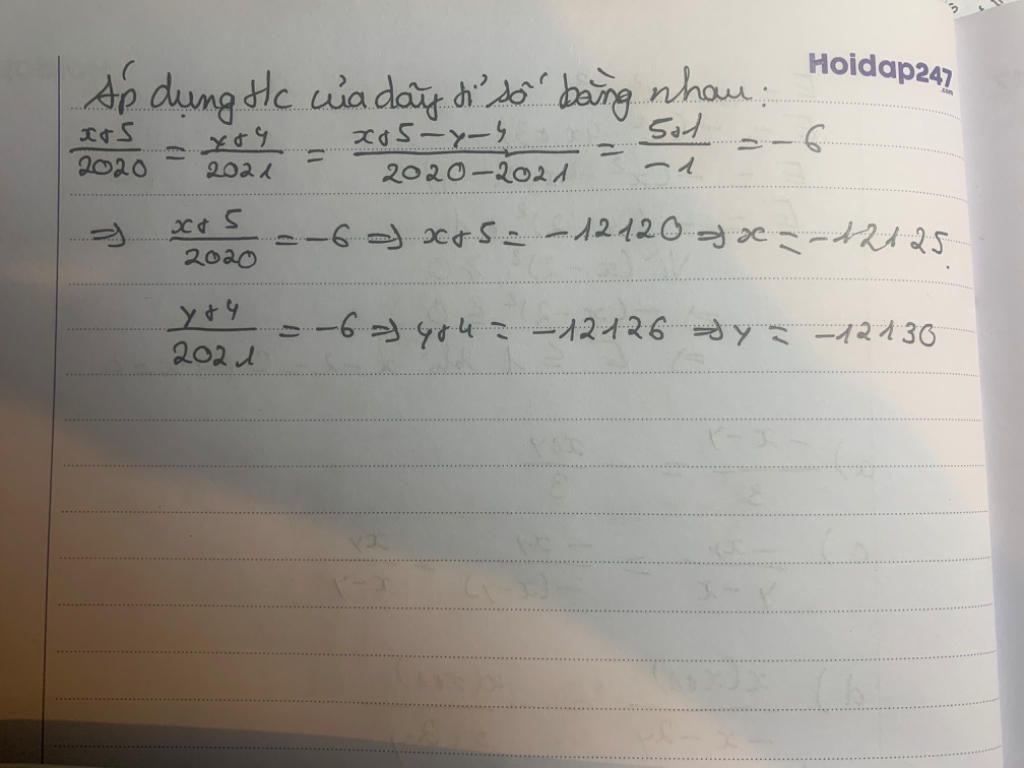 Hoidap247
.com
Áp dụng t/c của dãy tỉ số bằng nhau:
x+5/2020 = y+4/2021 = x+5-y-4/2020-2021 = 5+1/-1 = -6
=> x+5/2020 = -6 => x+5 = -12120 => x = -12125.
y+4/2021 = -6 => y+4 = -12126 => y = -12130